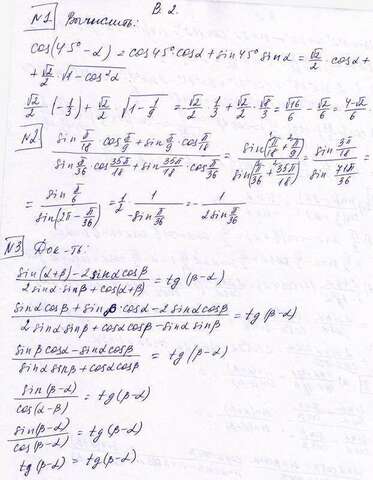 В. 2.
№1 Вычислить:
cos(45°-α) = cos45°cosα + sin45° sinα = √2/2 · cosα +
+ √2/2 · √(1-cos²α)
√2/2 · (-1/3) + √2/2 · √(1-1/9) = -√2/2 · 1/3 + √2/2 · √8/3 = √16/6 - √2/6 = (4-√2)/6
№2 (sin π/18 · cos π/9 + sin π/9 · cos π/18)/(sin π/36 · cos 35π/18 + sin 35π/18 · cos π/36) = sin(π/18 + π/9)/sin(π/36 + 35π/18) = sin 3π/18 / sin 71π/36 =
= sin π/6 / sin(2π - π/36) = 1/2 · 1/(-sin π/36) = - 1/(2sin π/36)
№3 Док-ть:
(sin(α+β) - 2sinαcosβ)/(2sinα·sinβ + cos(α+β)) = tg(β-α)
(sinαcosβ + sinβ·cosα - 2sinαcosβ)/(2sinα sinβ + cosαcosβ - sinα sinβ) = tg(β-α)
(sinβcosα - sinαcosβ)/(sinα sinβ + cosαcosβ) = tg(β-α)
sin(β-α)/cos(α-β) = tg(β-α)
sin(β-α)/cos(β-α) = tg(β-α)
tg(β-α) = tg(β-α)